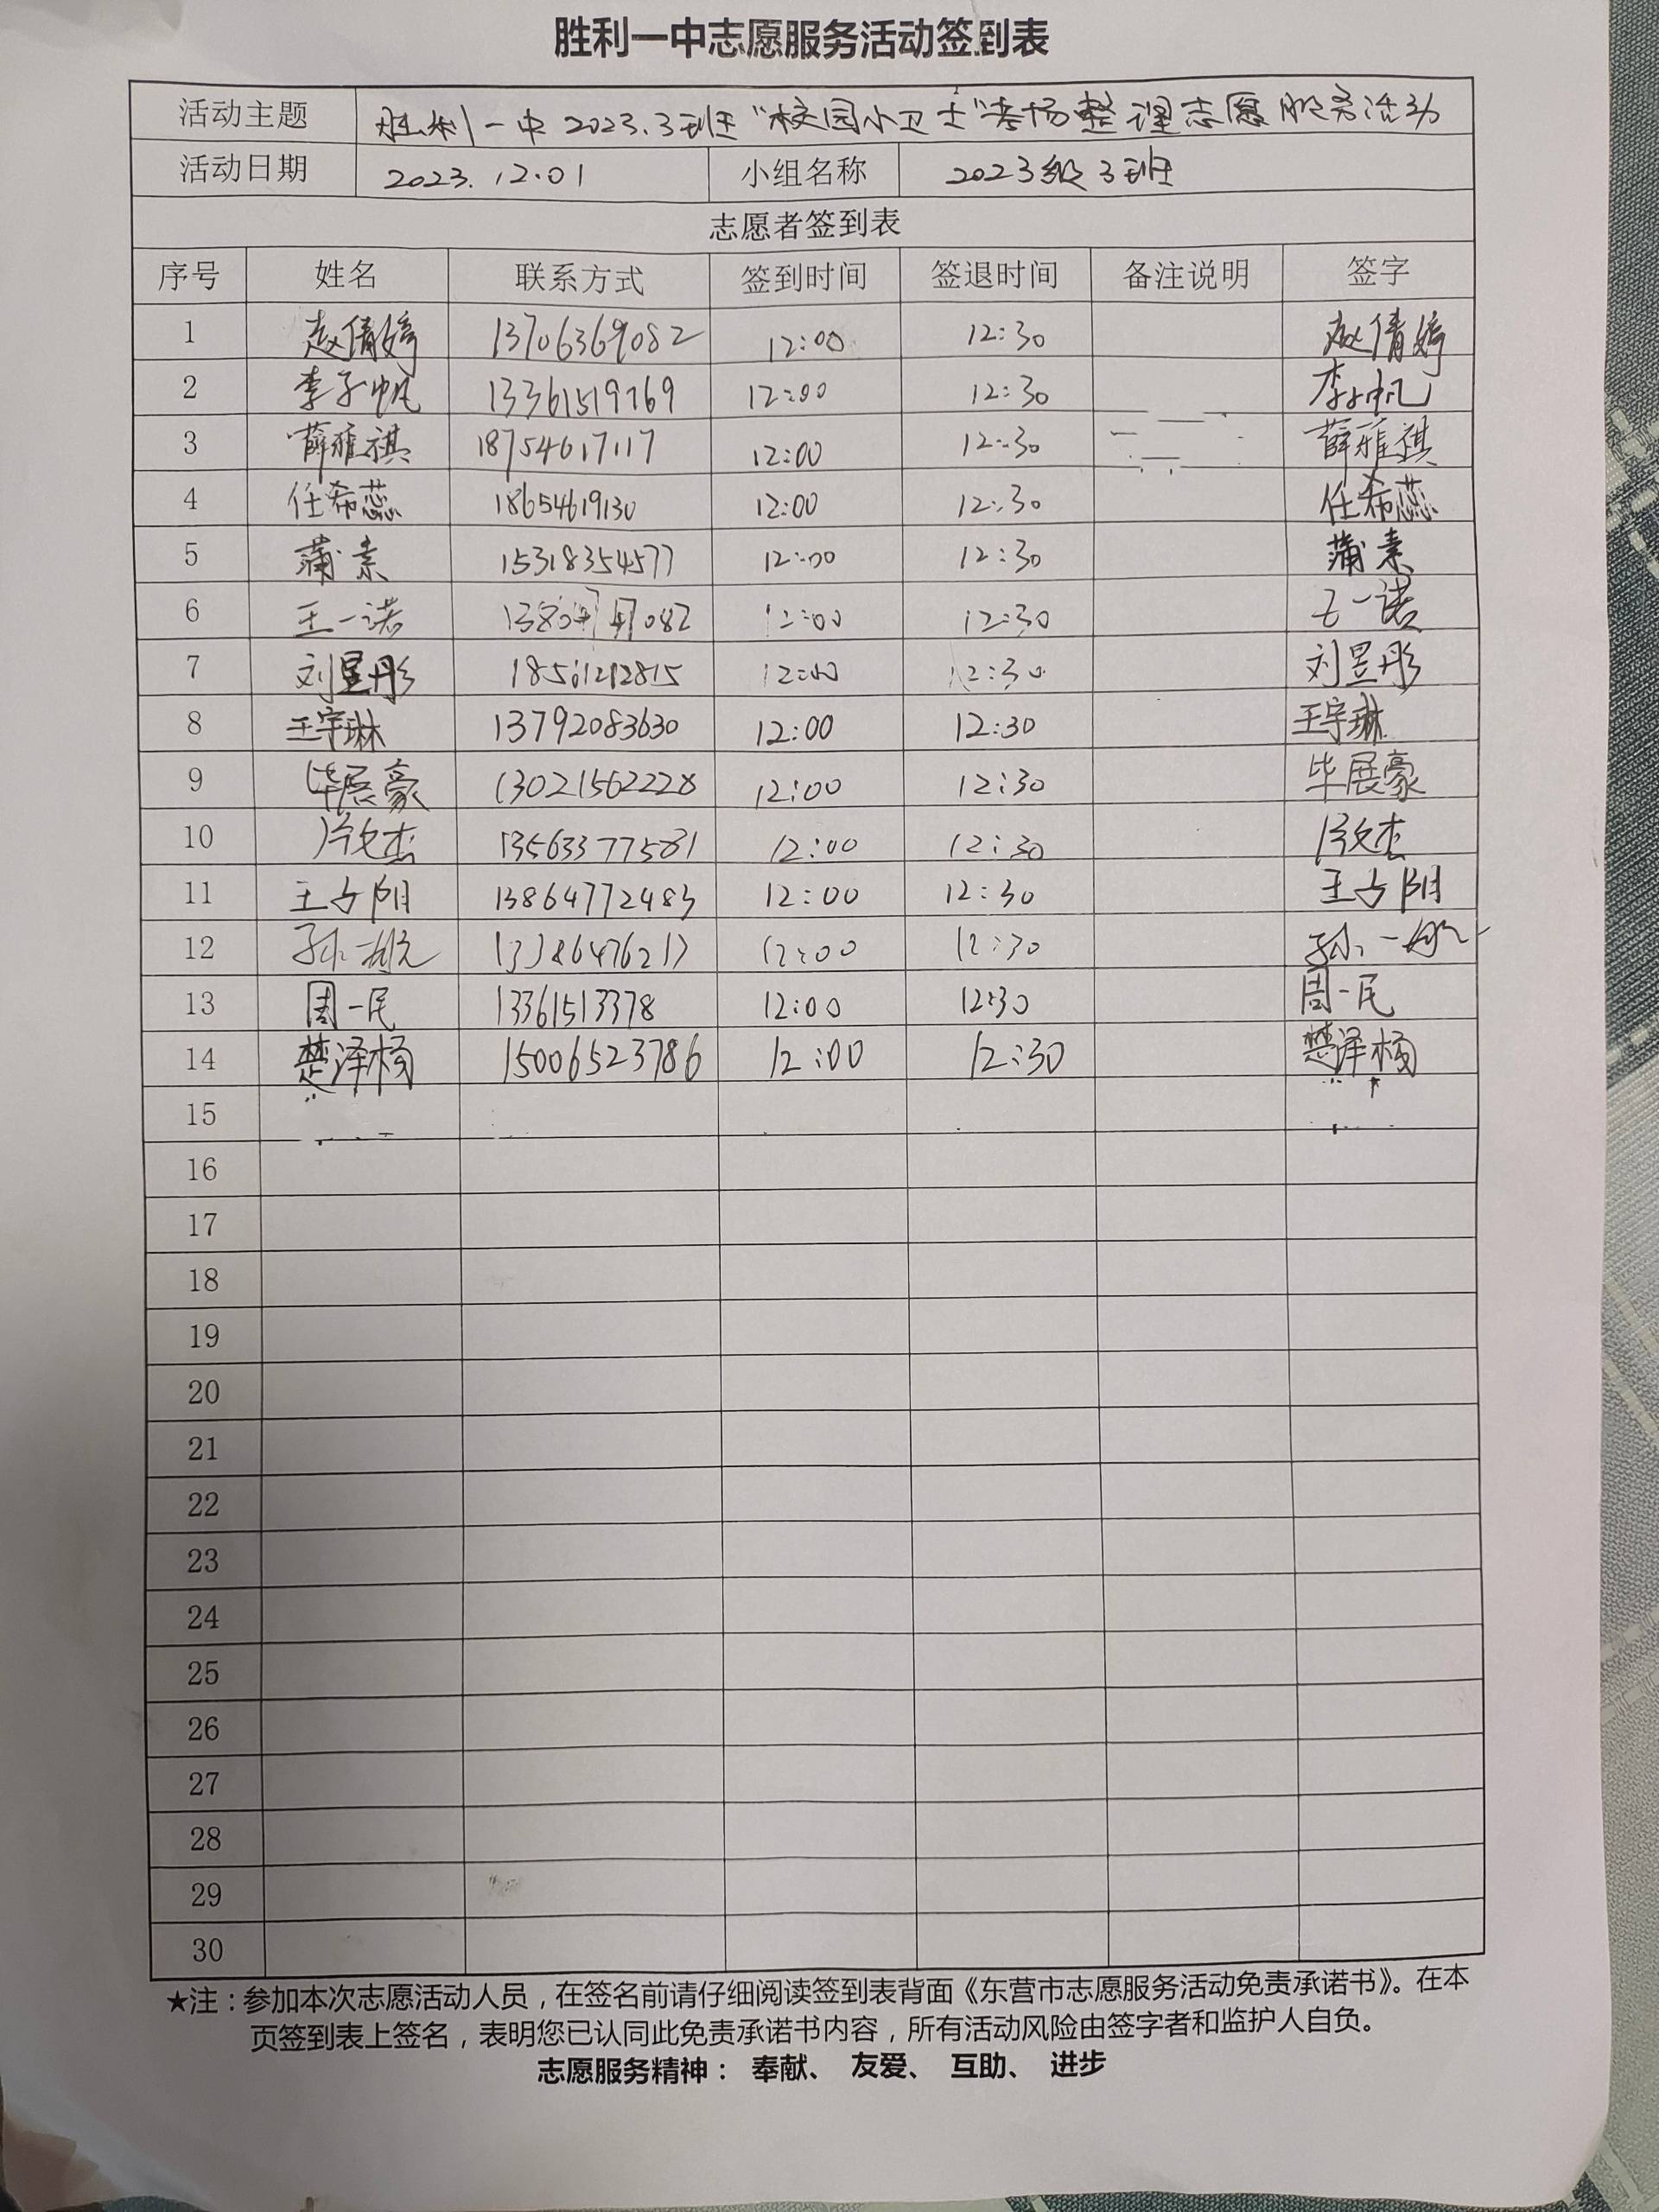 胜利一中志愿服务活动签到表
活动主题 胜利一中2023.3班“校园小卫士”考场整理志愿服务活动
活动日期 2023.12.01 小组名称 2023级3班
志愿者签到表
序号 姓名 联系方式 签到时间 签退时间 备注说明 签字
1 赵倩婷 13706369082 12:00 12:30 赵倩婷
2 李子帆 13361519769 12:00 12:30 李子帆
3 薛雅祺 18754617117 12:00 12:30 薛雅祺
4 任希蕊 18654619130 12:00 12:30 任希蕊
5 蒲素 15318354577 12:00 12:30 蒲素
6 王一诺 12:00 12:30 王一诺
7 刘昱彤 18561212815 12:00 12:30 刘昱彤
8 王宇琳 13792083630 12:00 12:30 王宇琳
9 毕展豪 13021562228 12:00 12:30 毕展豪
10 12:00 12:30
11 王占阳 13864772483 12:00 12:30 王占阳
12 孙一航 12:00 12:30 孙一航
13 周一民 13361513378 12:00 12:30 周一民
14 楚泽杨 15006523786 12:00 12:30 楚泽杨
15
16
17
18
19
20
21
22
23
24
25
26
27
28
29
30
★注：参加本次志愿活动人员，在签名前请仔细阅读签到表背面《东营市志愿服务活动免责承诺书》。在本
页签到表上签名，表明您已认同此免责承诺书内容，所有活动风险由签字者和监护人自负。
志愿服务精神： 奉献、 友爱、 互助、 进步